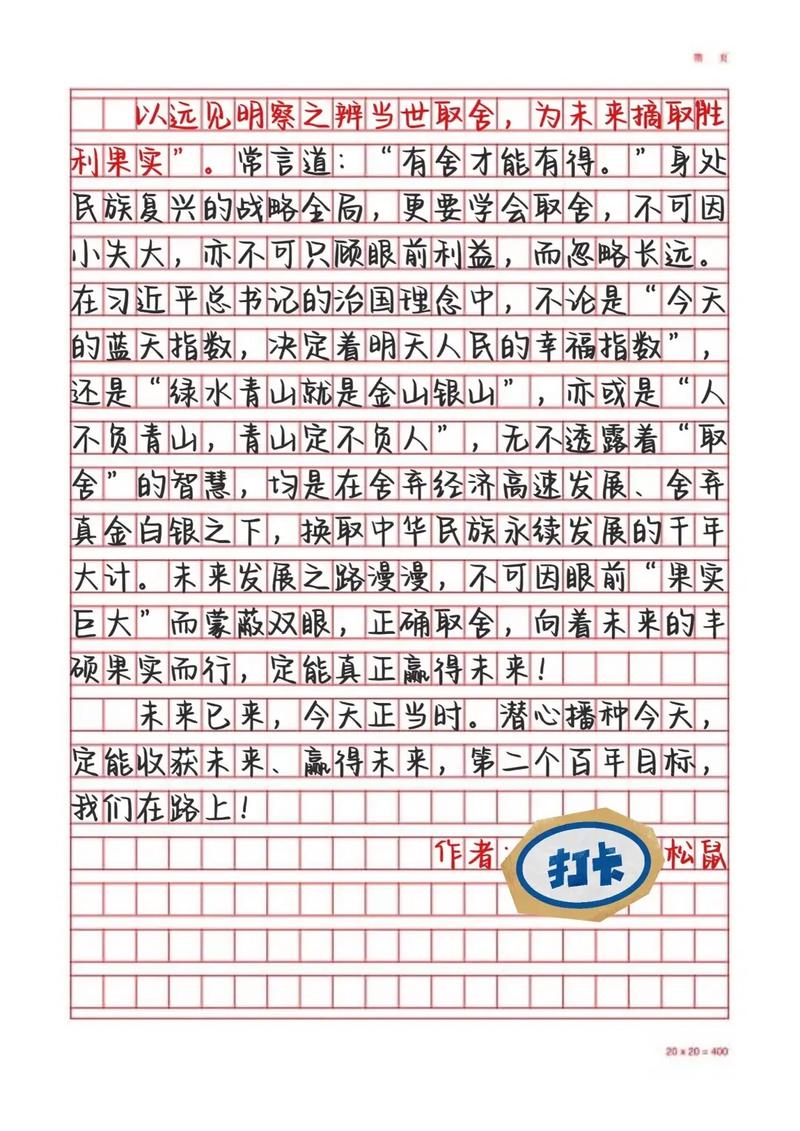 第 页
以远见明察之辨当世取舍，为未来摘取“胜
利果实”。常言道：“有舍才能有得。”身处
民族复兴的战略全局，更要学会取舍，不可因
小失大，亦不可只顾眼前利益，而忽略长远。
在习近平总书记的治国理念中，不论是“今天
的蓝天指数，决定着明天人民的幸福指数”，
还是“绿水青山就是金山银山”，亦或是“人
不负青山，青山定不负人”，无不透露着“取
舍”的智慧，均是在舍弃经济高速发展、舍弃
真金白银之下，换取中华民族永续发展的千年
大计。未来发展之路漫漫，不可因眼前“果实
巨大”而蒙蔽双眼，正确取舍，向着未来的丰
硕果实而行，定能真正赢得未来！
未来已来，今天正当时。潜心播种今天，
定能收获未来、赢得未来，第二个百年目标，
我们在路上！
作者：打卡松鼠
20 x 20 = 400